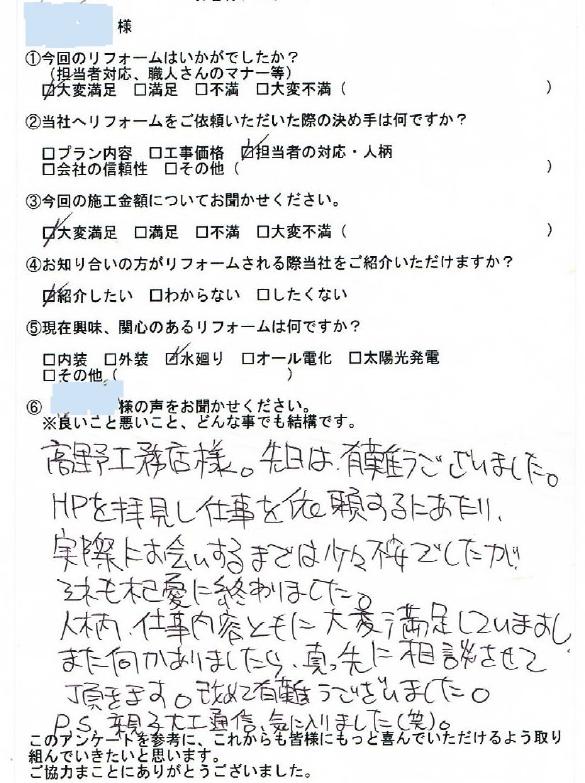 様
①今回のリフォームはいかがでしたか？
(担当者対応、職人さんのマナー等)
☑大変満足 □満足 □不満 □大変不満 ( )
②当社へリフォームをご依頼いただいた際の決め手は何ですか？
□プラン内容 □工事価格 ☑担当者の対応・人柄
□会社の信頼性 □その他 ( )
③今回の施工金額についてお聞かせください。
☑大変満足 □満足 □不満 □大変不満 ( )
④お知り合いの方がリフォームされる際当社をご紹介いただけますか？
☑紹介したい □わからない □したくない
⑤現在興味、関心のあるリフォームは何ですか？
□内装 □外装 ☑水廻り □オール電化 □太陽光発電
□その他 ( )
⑥ 様の声をお聞かせください。
※良いこと悪いこと、どんな事でも結構です。
高野工務店様。先日は、有難うございました。
HPを拝見し仕事を依頼するにあたり、
実際にお会いするまでは少々不安でしたが
それも杞憂に終わりました。
人柄、仕事内容ともに大変満足していまし
また何かありましたら、真っ先に相談させて
頂きます。改めて有難うございました。
P.S. 親子大工通信、気に入りました(笑)。
このアンケートを参考に、これからも皆様にもっと喜んでいただけるよう取り
組んでいきたいと思います。
ご協力まことにありがとうございました。